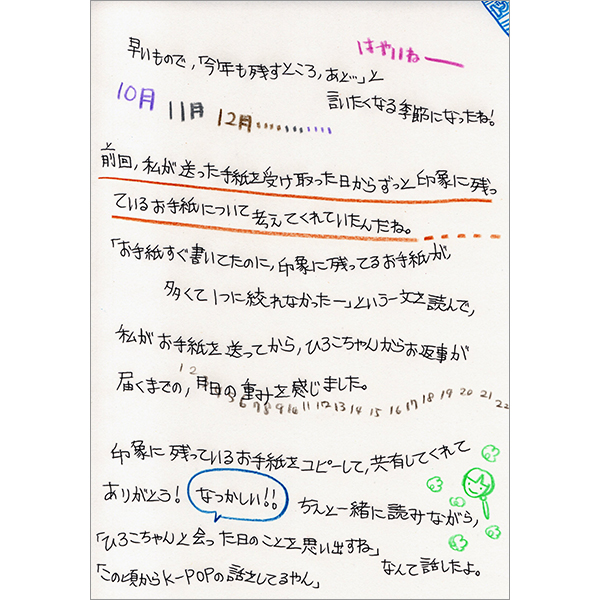 はやいねー
早いもので,「今年も残すところ,あと…」と
言いたくなる季節になったね!
10月 11月 12月
前回,私が送った手紙を受け取った日からずっと印象に残っ
ているお手紙について考えてくれていたんだね。
「お手紙すぐ書いてたのに,印象に残ってるお手紙が
多くて1つに絞れなかったー」という一文を読んで,
私がお手紙を送ってから,ひろこちゃんからお返事が
届くまでの,月日の重みを感じました。
印象に残っているお手紙をコピーして,共有してくれて
ありがとう! なつかしい!! ちえと一緒に読みながら,
「ひろこちゃんと会った日のことを思い出すね」
「この頃からK-POPの話をしてるやん」 なんて話したよ。